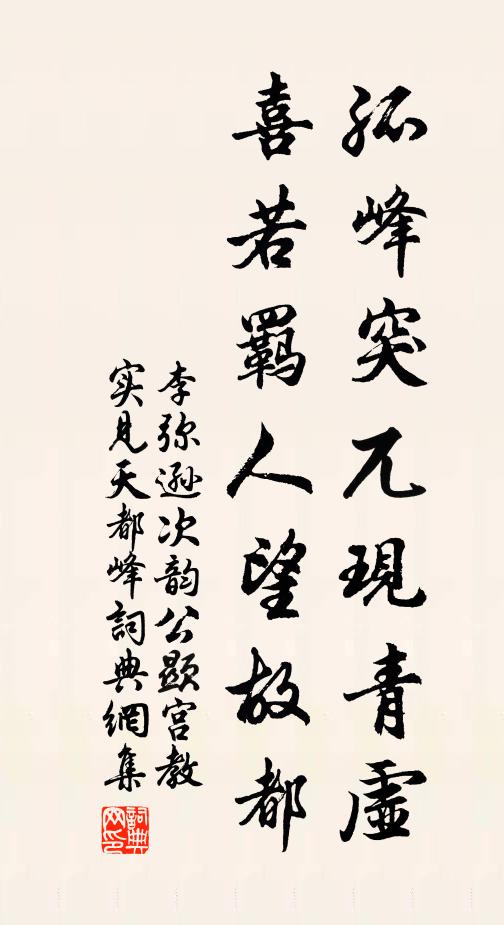 孤峰突兀現青虛
喜若羈人望故都
李弥遜次韵公顯宫教
实見天都峰詞典網集
詞典網印